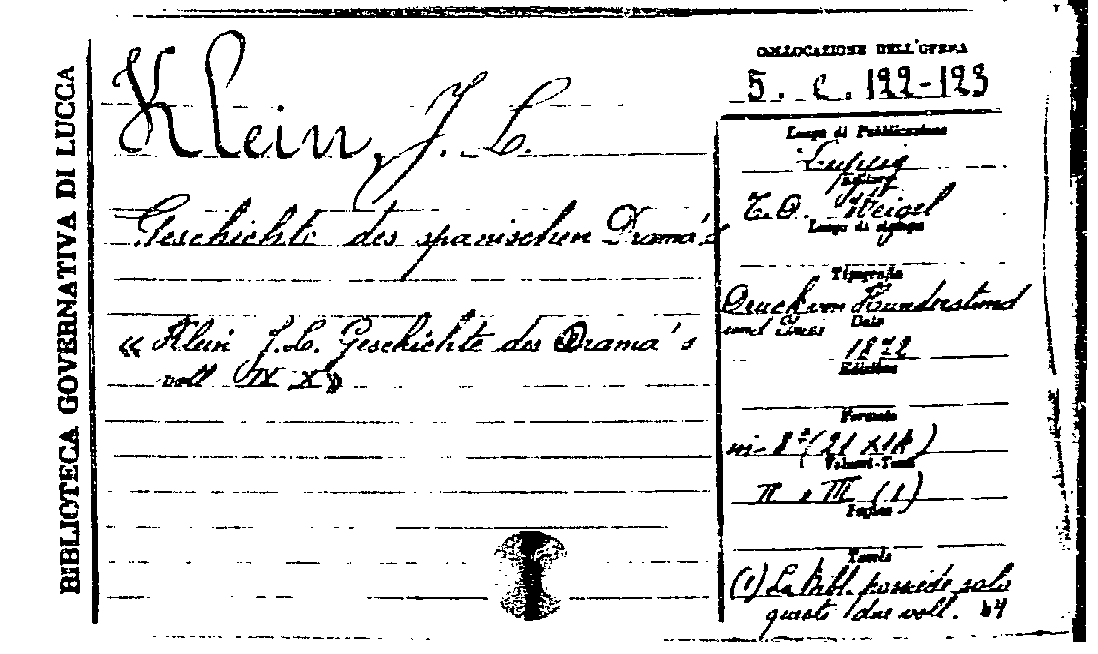 BIBLIOTECA GOVERNATIVA DI LUCCA
Klein, J. L.
Geschichte des spanischen Drama's
« Klein J. L. Geschichte des Drama's
voll IX X »
COLLOCAZIONE DELL'OPERA
5. C. 122-123
Luogo di Pubblicazione
Leipzig
Editore
T. O. Weigel
Luogo di stampa
Tipografia
Druck von Hunderstund
und
Data
1872
Edizione
Formato
in-8° (21 x 14)
Volumi-Tomi
II, III (1)
Pagine
Tavole
(1) La Bibl. possiede solo
questi due voll. 64